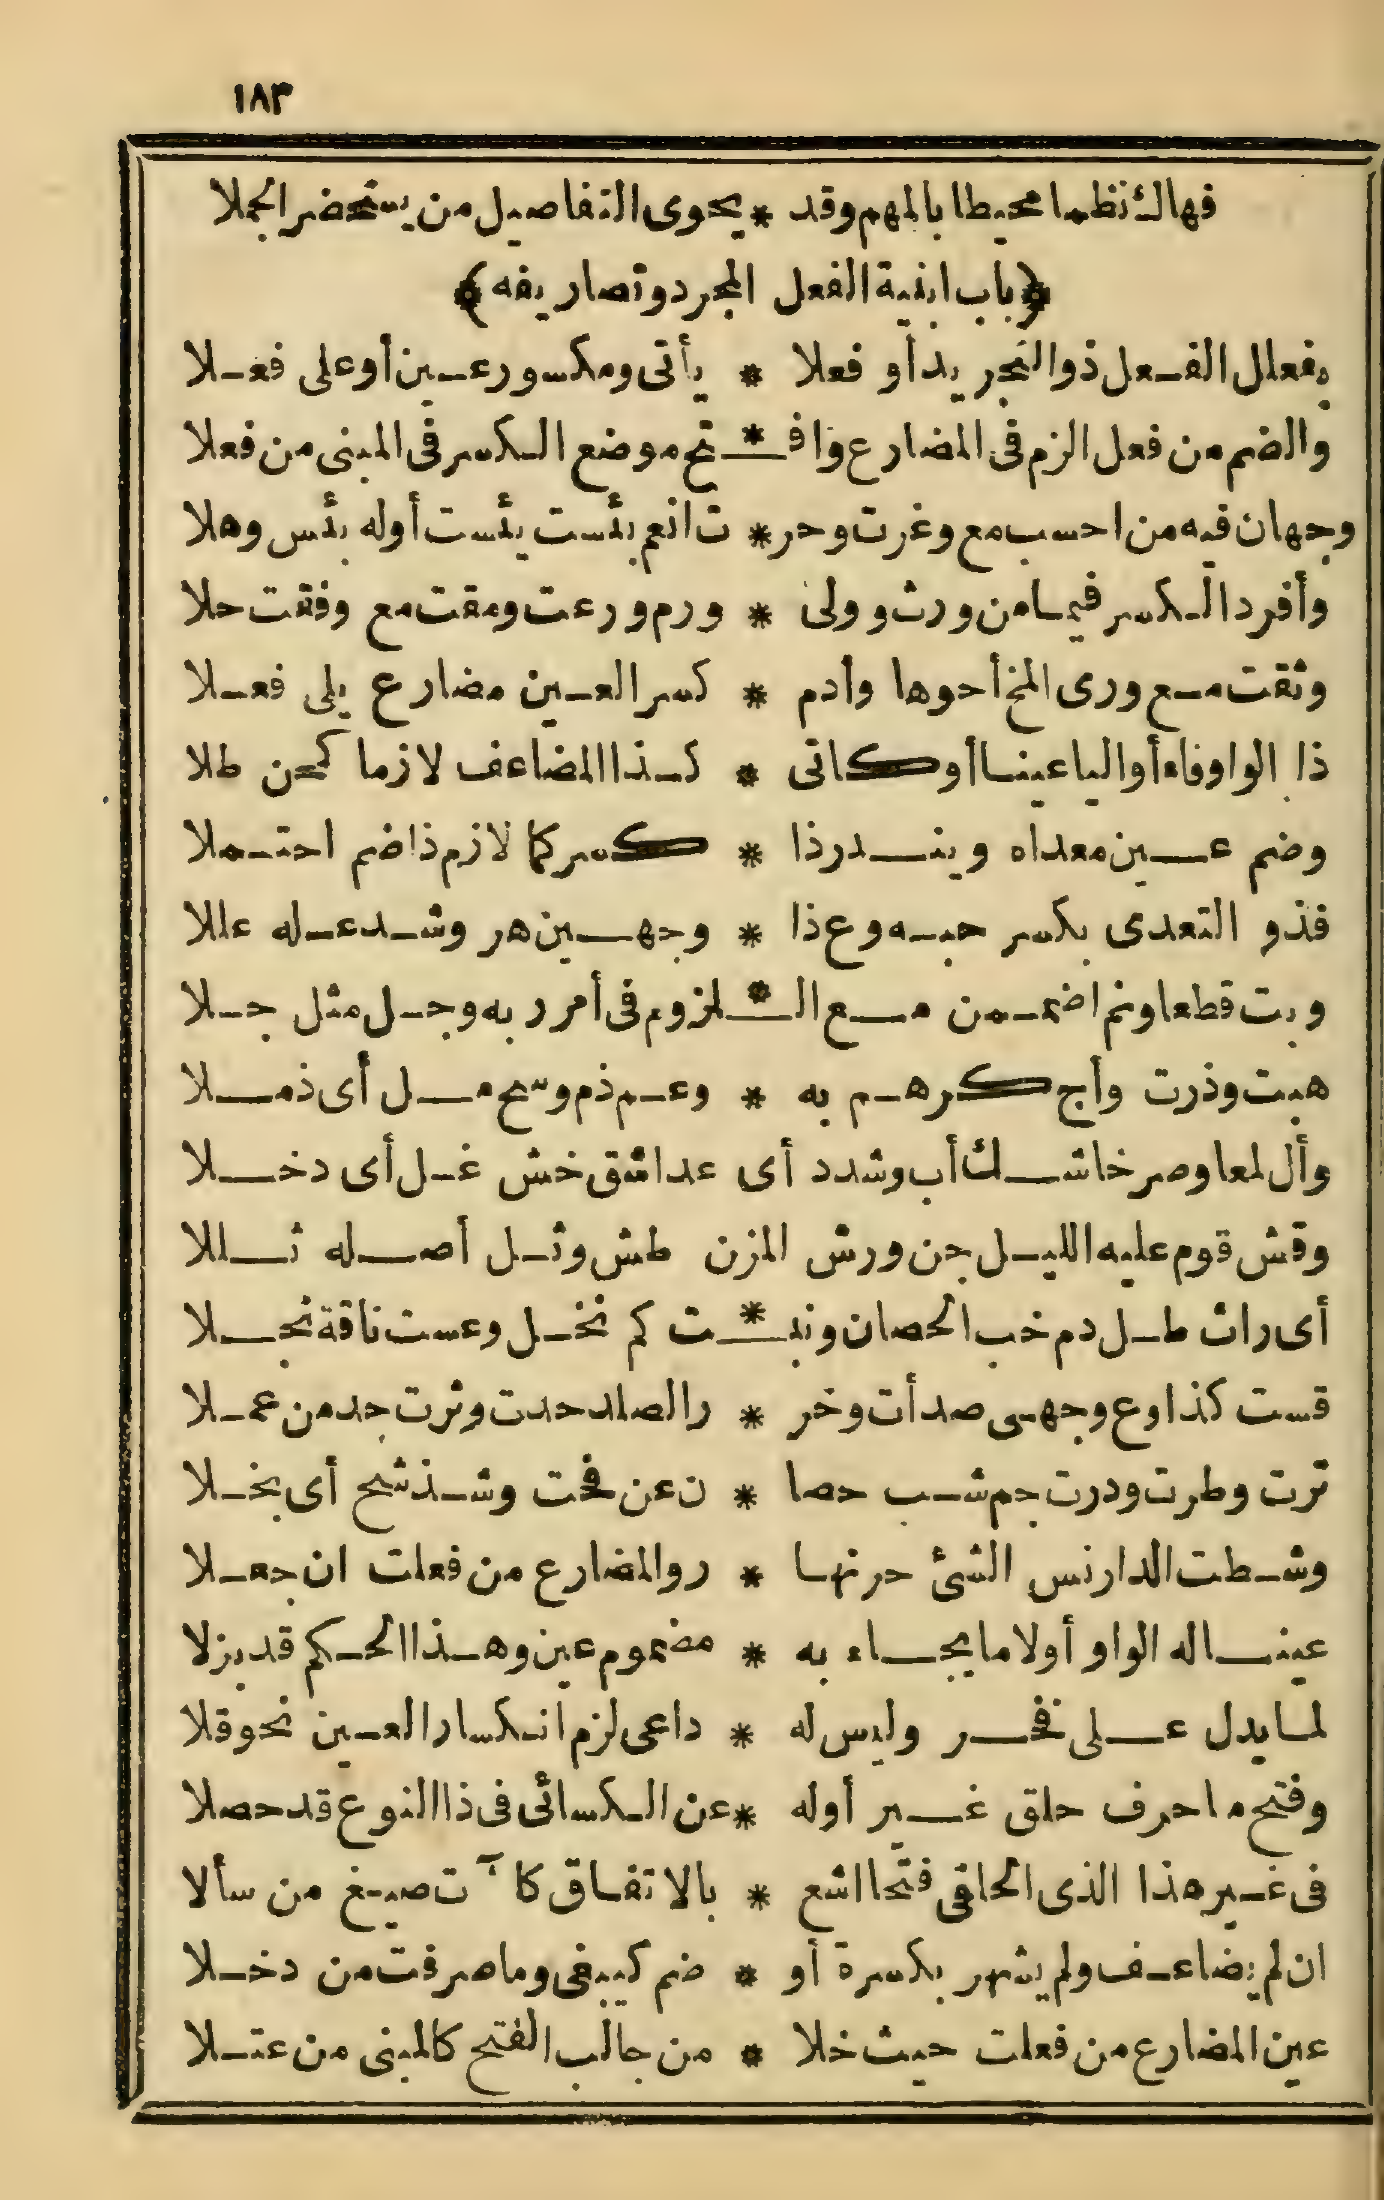 ١٨٣
فهاك نظما محيطا بالمهم وقد * يحوى التفاصيل من يستحضر الجملا
﴿باب ابنية الفعل المجرد وتصاريفه﴾
بفعلل الفعل ذو التجريد أو فعلا * يأتى ومكسور عين أو على فعلا
والضم من فعل الزم فى المضارع وافـ * ـتح موضع الكسر فى المبنى من فعلا
وجهان فيه من احسب مع وغرت وحر * ت انعم بئست يئست أوله يئس وهلا
وأفرد الكسر فيما من ورث وولى * ورم ورعت ومقت مع وفقت حلا
وثقت مع ورى المخ أحوها وأدم * كسر العين مضارع يلى فعلا
ذا الواو فاء أو اليا عينا أو كاتى * كذا المضاعف لازما كحن طلا
وضم عين معداه ويندر ذا * كسر كما لازم ذا ضم احتملا
فذو التعدى بكسر حبه وع ذا * وجهين هر وشد عله عللا
وبت قطعا ونم اضممن مع الـ * ـلزوم فى أمرر به وجل مثل جلا
هبت وذرت وأج كر هم به * وعم ذم وسح مل أى ذملا
وأل لمعا وصرخا شك أب وشدد أى عدا شق خش غل أى دخلا
وقش قوم عليه الليل جن ورش المزن طش وثل أصله ثللا
أى راث طل دم خب الحصان ونبـ * ـت كم نخل وعست ناقة نجلا
قست كذا وع وجهى صد أت وخر * ر الصلد حدت وثرت جد من عملا
ترت وطرت ودرت جم شب حصا * ن عن فحت وشذ شح أى بخلا
وشطت الدار نس الشئ حر نها * ر والمضارع من فعلت ان جعلا
عينا له الواو أو لاما يجاء به * مضموم عين وهذا الحكم قد بزلا
لما يدل على فخر وليس له * داعى لزم انكسار العين نحو قلا
وفتح ما حرف حلق غير أوله * عن الكسائى فى ذا النوع قد حصلا
فى غير هذا الذى الحلقى فتحا اشع * بالاتفاق كآت صيغ من سألا
ان لم يضاعف ولم يشهر بكسرة أو * ضم كيبغى وما صرفت من دخلا
عين المضارع من فعلت حيث خلا * من جالب الفتح كالمبنى من عتلا